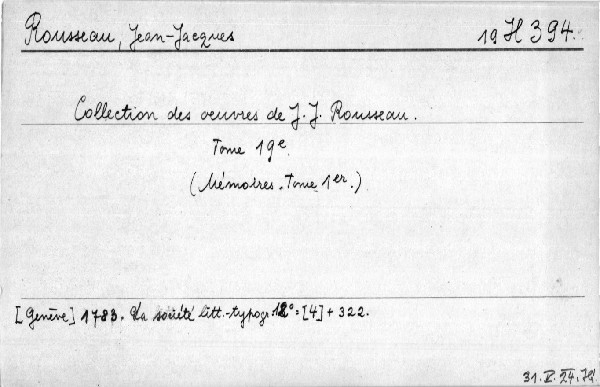 Rousseau, Jean-Jacques 19 H 394.
Collection des oeuvres de J. J. Rousseau.
Tome 19e.
(Mémoires. Tome 1er.)
[Genève] 1783. La société litt.-typogr. 12° = [4] + 322.
31. V. 24.